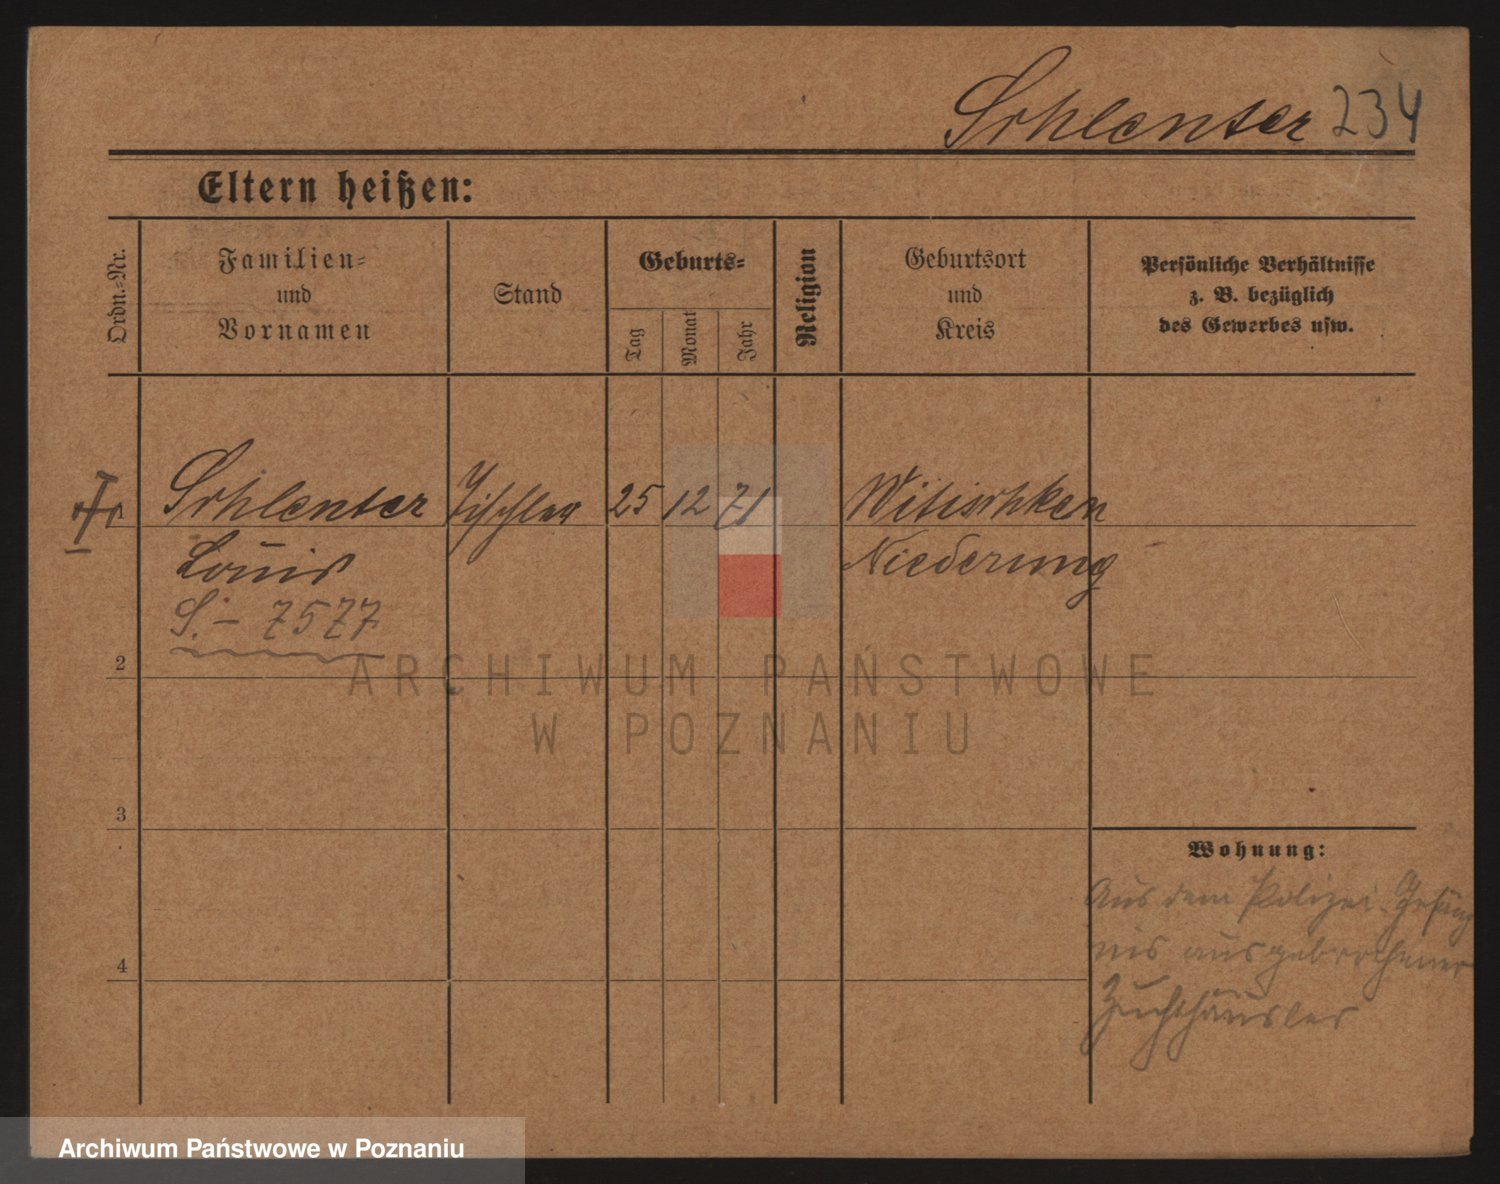 Schlenter 234
Eltern heißen:
Ordn.-Nr.
Familien-
und
Vornamen
Stand
Geburts-
Tag
Monat
Jahr
Religion
Geburtsort
und
Kreis
Persönliche Verhältnisse
z. B. bezüglich
des Gewerbes usw.
1 Schlenter Tischler 25 12 71 Witischken
Louis Niederung
S. - 7577
2
ARCHIWUM PAŃSTWOWE
W POZNANIU
3
Wohnung:
Aus dem Polizei-Gefäng
nis ausgebrochener
Zuchthäusler
4
Archiwum Państwowe w Poznaniu